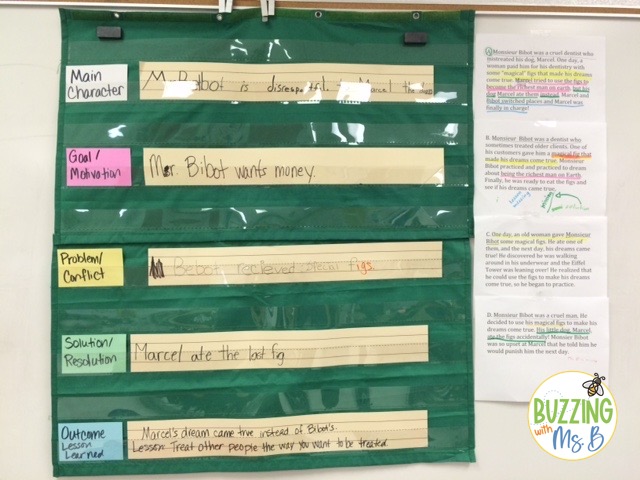 Main
Character
Mr. Bibot is disrespectful. Marcel the
Goal/
Motivation
Mr. Bibot wants money.
Problem/
Conflict
Bebot recieved special figs.
Solution/
Resolution
Marcel ate the last fig
Outcome
Lesson
Learned
Marcel's dream came true instead of Bibot's.
Lesson: Treat other people the way you want to be treated.
A Monsieur Bibot was a cruel dentist who
mistreated his dog, Marcel. One day, a
woman paid him for his dentistry with
some "magical" figs that made his dreams
come true. Marcel tried to use the figs to
become the richest man on earth, but his
dog Marcel ate them instead. Marcel and
Bibot switched places and Marcel was
finally in charge!
B. Monsieur Bibot was a dentist who
sometimes treated older clients. One of
his customers gave him a magical fig that
made his dreams come true. Monsieur
Bibot practiced and practiced to dream
about being the richest man on Earth.
Finally, he was ready to eat the figs and
see if his dreams came true.
C. One day, an old woman gave Monsieur
Bibot some magical figs. He ate one of
them, and the next day, his dreams came
true! He discovered he was walking
around in his underwear and the Eiffel
Tower was leaning over! He realized that
he could use the figs to make his dreams
come true, so he began to practice.
D. Monsieur Bibot was a cruel man. He
decided to use his magical figs to make his
dreams come true. His little dog, Marcel,
ate the figs accidentally! Monsier Bibot
was so upset at Marcel that he told him he
would punish him the next day.
BUZZING
with
Ms. B